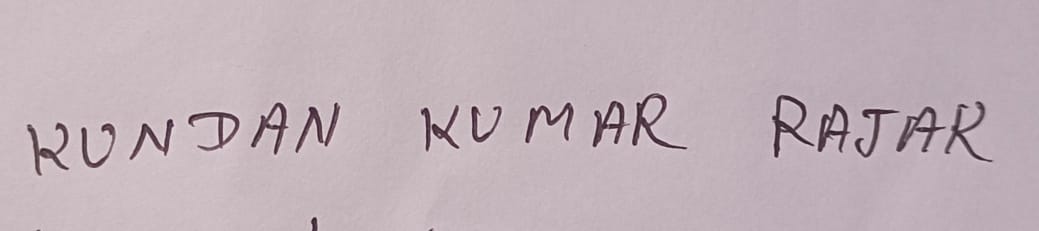 KUNDAN KUMAR RAJAK